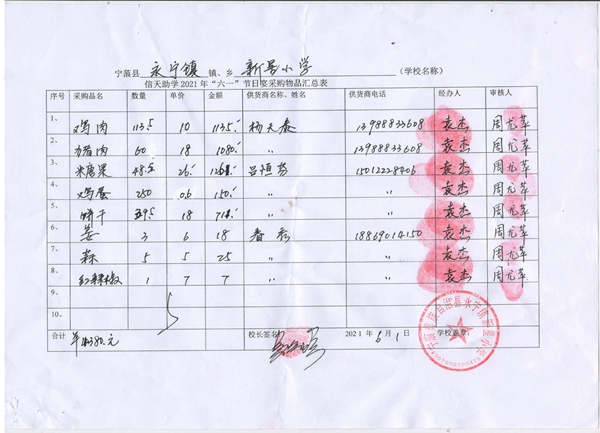 宁蒗县 永宁镇 镇、乡 新营小学 （学校名称）
信天助学2021年“六一”节日宴采购物品汇总表
序号 采购品名 数量 单价 金额 供货商名称、姓名 供货商电话 经办人 审核人
1、 鸡肉 113.5 10 1135. 杨天春 13988833608 袁杰 周尤苹
2、 猪肉 60 18 1080. 〃 13988833608 袁杰 周尤苹
3、 48.5 26. 吕恒芬 15012228406 袁杰 周尤苹
4、 鸡蛋 250 0.6 150. 〃 〃 袁杰 周尤苹
5、 饼干 18 〃 〃 袁杰 周尤苹
6、 姜 3 6 18 春秀 18869014150 袁杰 周尤苹
7、 蒜 5 5 25 〃 〃 袁杰 周尤苹
8、 红辣椒 1 7 7 〃 〃 袁杰 周尤苹
9、
10、
合计 元 校长签名： 2021年6月1 学校盖章：